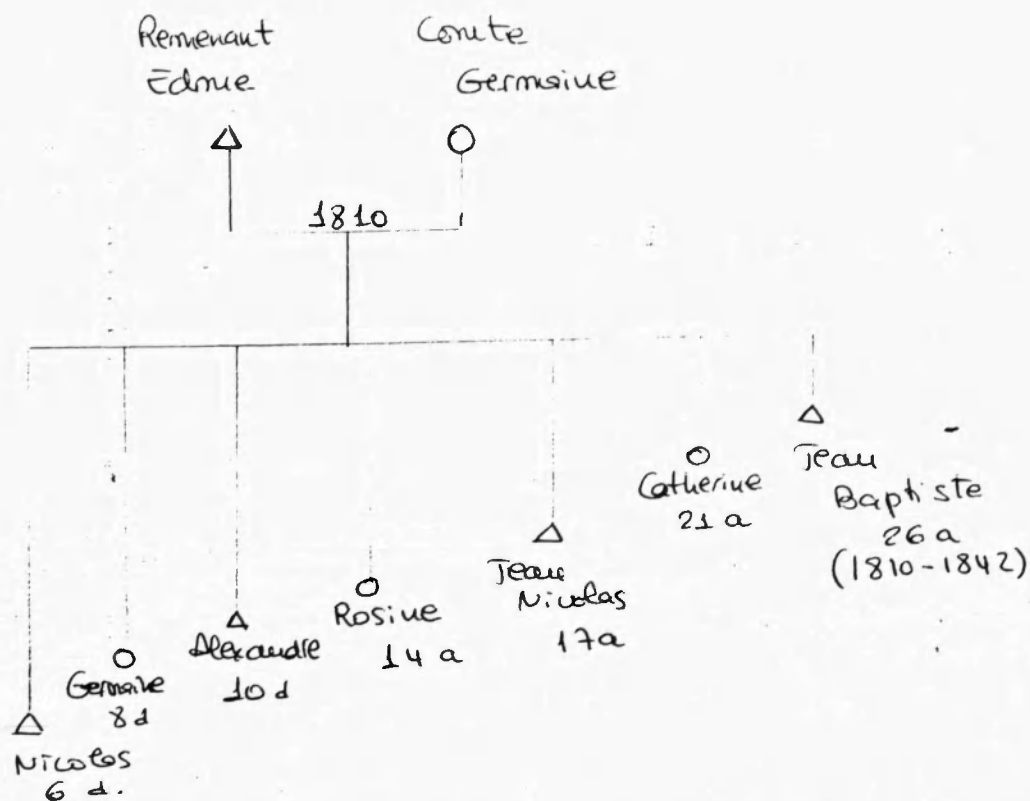 Remenant
Edme
Comte
Germaine
1810
Jean
Baptiste
26 a
(1810-1842)
Catherine
21 a
Jean
Nicolas
17 a
Rosine
14 a
Alexandre
10 a
Germaine
8 a
Nicolas
6 a.